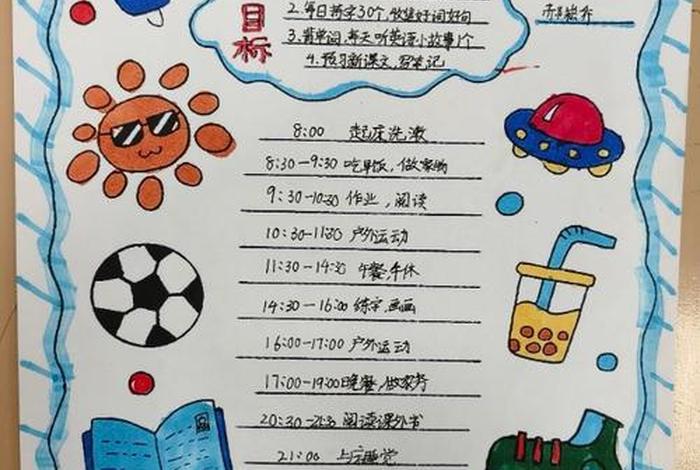 目标
2.每日练字30个,收集好词好句
3.背单词,每天听英语小故事1个
4.预习新课文,写笔记
8:00 起床洗漱
8:30-9:30 吃早饭,做家务
9:30-10:30 作业,阅读
10:30-11:30 户外运动
11:30-14:30 午餐,午休
14:30-16:00 练字,画画
16:00-17:00 户外运动
17:00-19:00 晚餐,做家务
20:30- 阅读课外书
21:00 上床睡觉